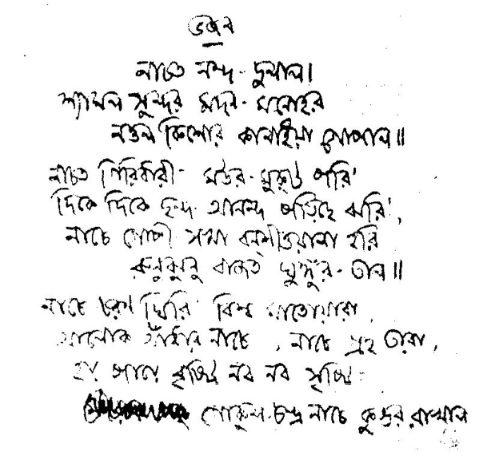 ভজন
নাচত নন্দ-দুলাল।
শ্যামল সুন্দর মদন-মনোহর
নওল কিশোর কানাইয়া গোপাল॥
নাচত গিরিধারী ময়ূর-মুকুট পরি'
দিকে দিকে ছন্দ আনন্দ পড়িছে ঝরি',
নাচে গোপী সখা বংশীওয়ালা হরি
রুনুঝুনু বাজত ঘুঙ্গুর-তাল॥
নাচে ঘিরি' বিশ্ব মাতোয়ারা,
আলোক আঁধার নাচে, নাচে গ্রহ তারা,
নব নব সৃষ্টি
গোকুল-চন্দ্র নাচে